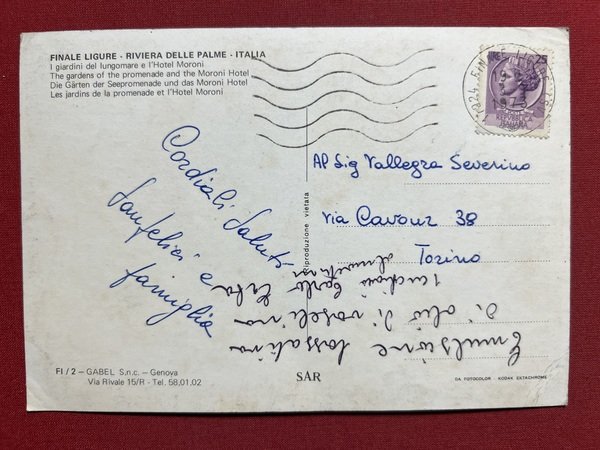 FINALE LIGURE - RIVIERA DELLE PALME - ITALIA
I giardini del lungomare e l'Hotel Moroni
The gardens of the promenade and the Moroni Hotel
Die Gärten der Seepromenade und das Moroni Hotel
Les jardins de la promenade et l'Hotel Moroni
25
1973
Cordiali Saluti
e
famiglia
riproduzione vietata
Al Sig Vallegra Severino
via Cavour 38
Torino
Emulsione lassativa
di olio di vaselina
Carlo Erba
FI / 2 — GABEL S.n.c. - Genova
Via Rivale 15/R - Tel. 58.01.02
SAR
DA FOTOCOLOR - KODAK EKTACHROME